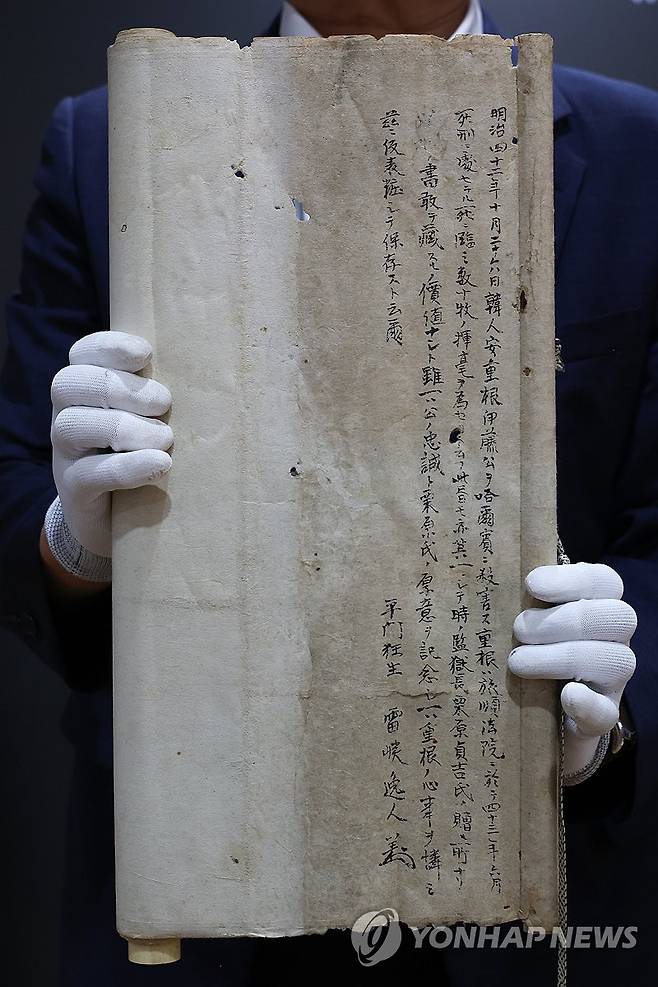 明治四十二年十月二十六日韓人安重根伊藤公ヲ哈爾賓ニ殺害ス重根ハ旅順法院ニ於テ四十三年六月
死刑ニ処セラル死ニ臨ミ数十枚ノ揮毫ヲ為セリト云フ此書モ亦其一ニシテ時ノ監獄長栗原貞吉氏ノ贈ル所ナリ
ノ書敢テ蔵スルノ価値ナシト雖一ハ公ノ忠誠ト栗原氏ノ厚意ヲ記念シ一ハ重根ノ心事ヲ憐ミ
茲ニ仮表粧シテ保存スト云爾
平門狂生 雷
逸人
YONHAP NEWS